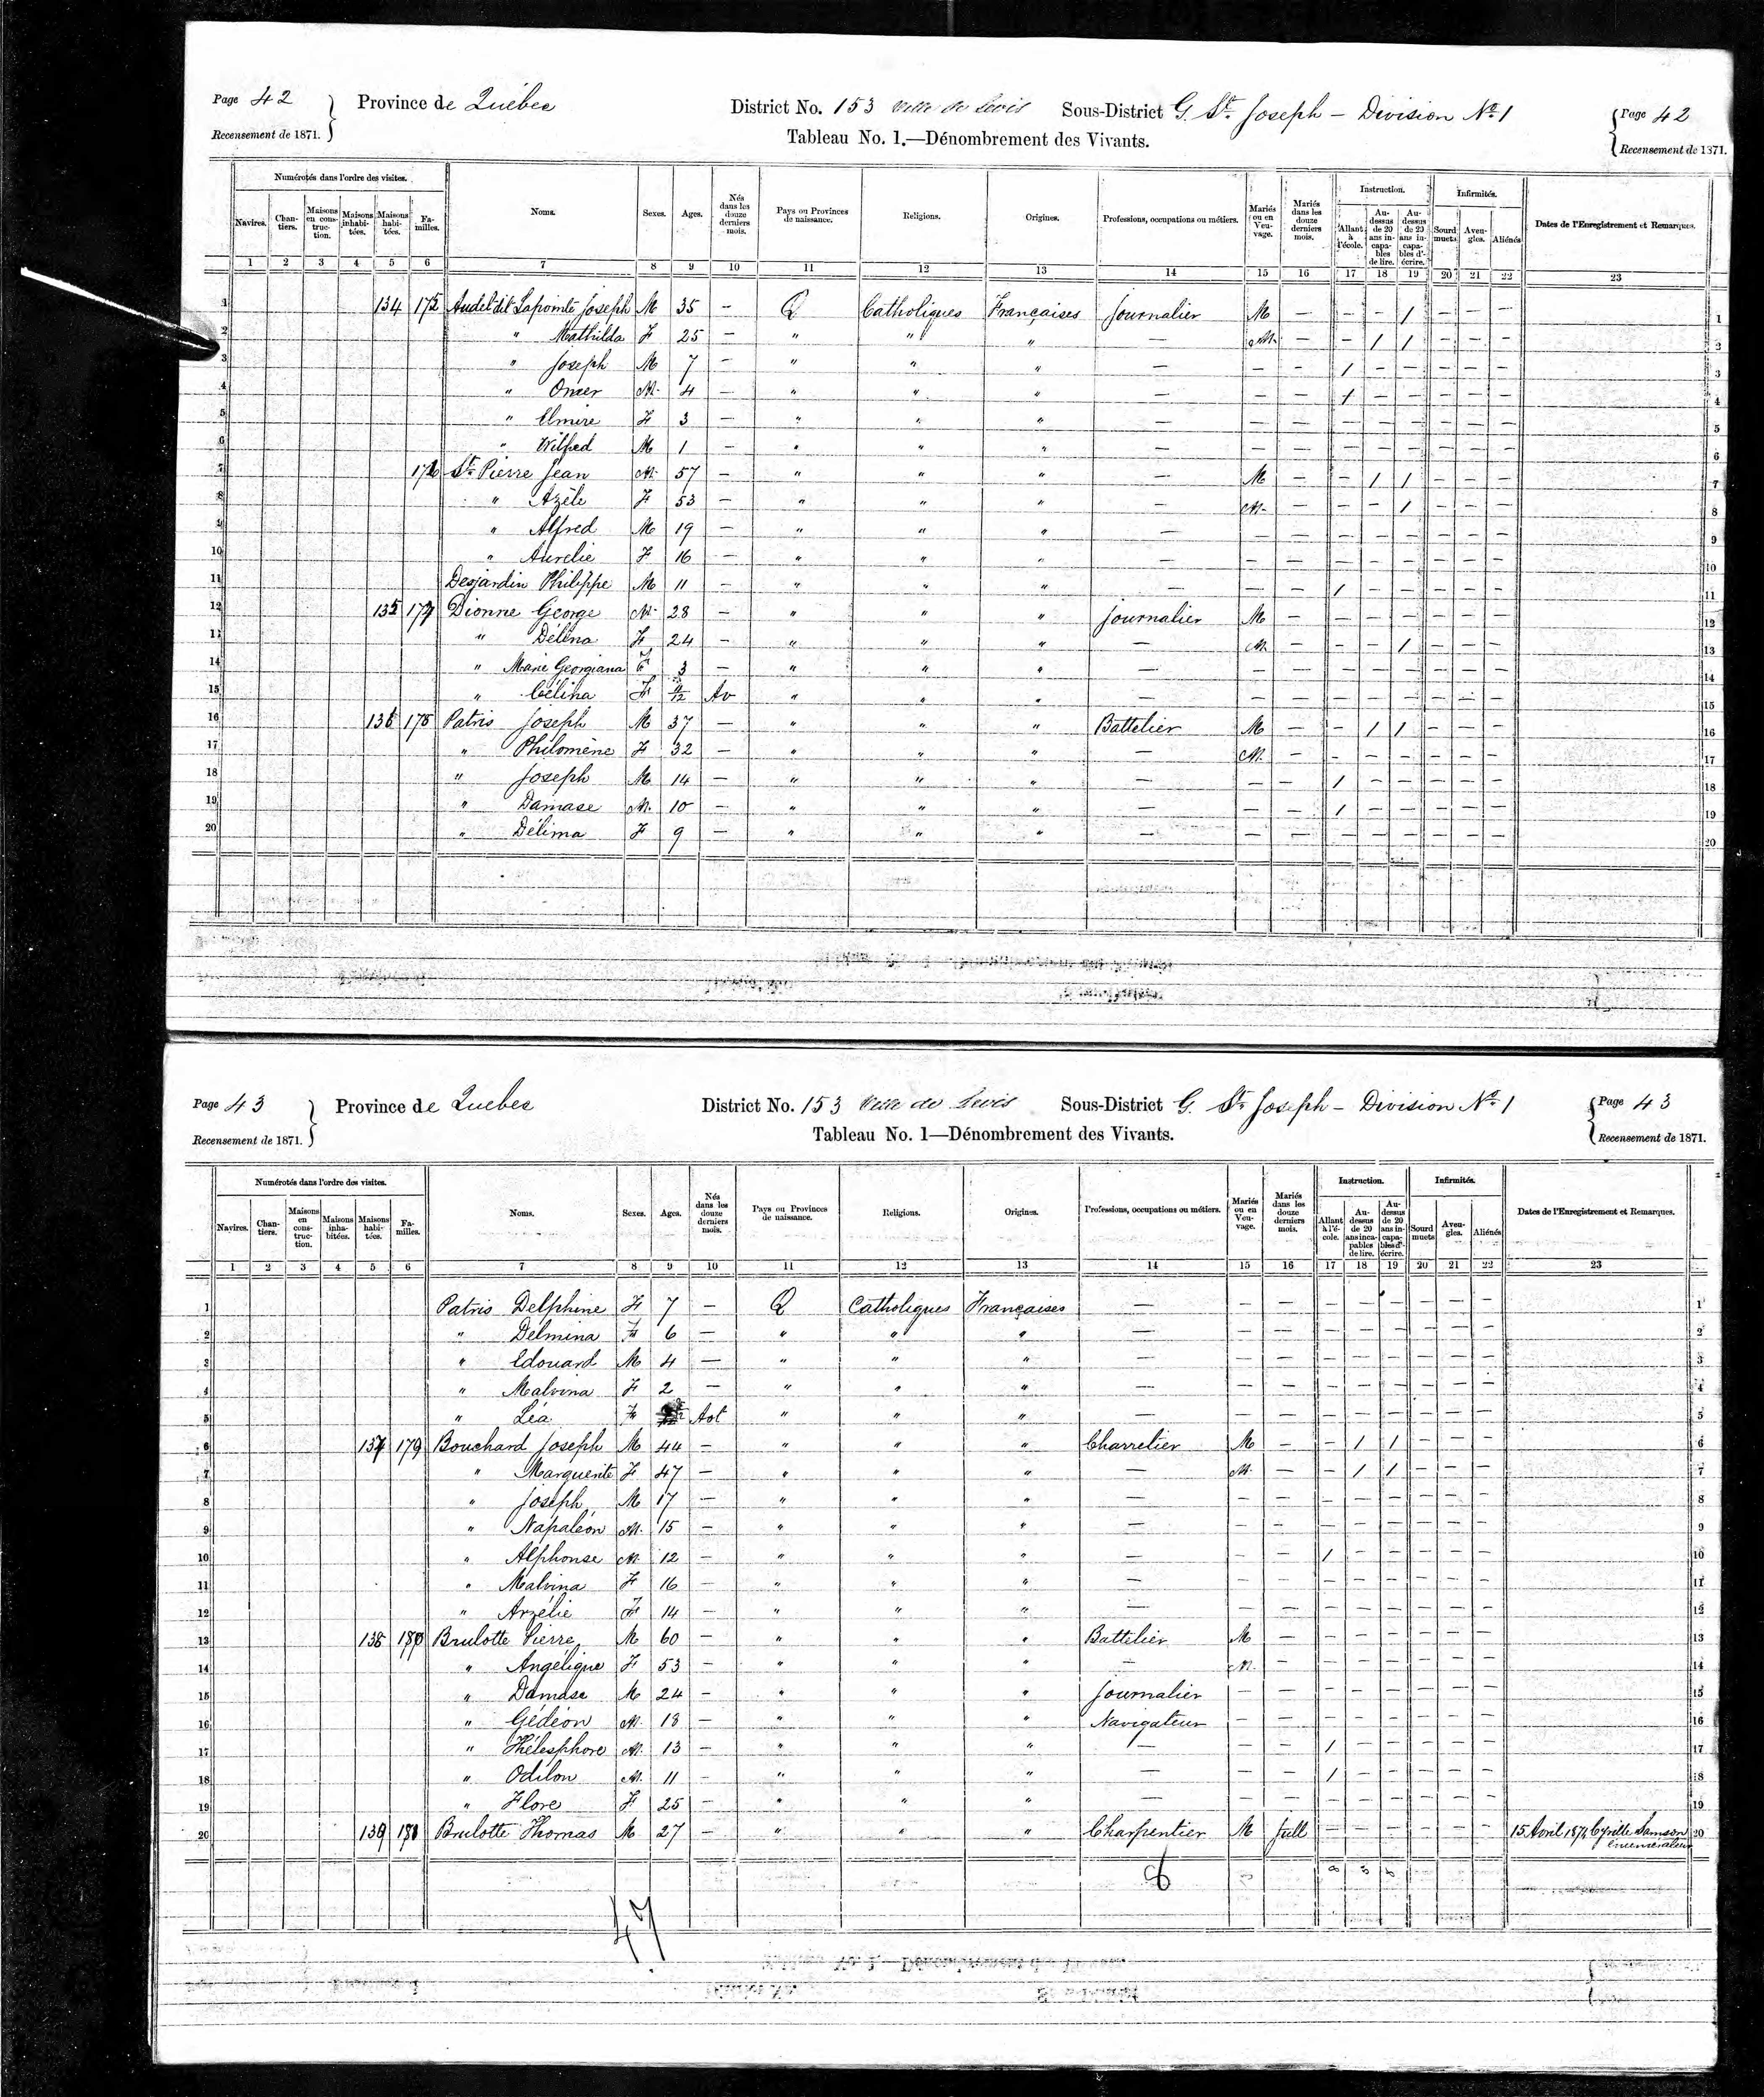 Page 42 } Province de Québec District No. 153 Ville de Levis Sous-District G. St. Joseph – Division No. 1 { Page 42
Recensement de 1871. Tableau No. 1.—Dénombrement des Vivants. Recensement de 1871.
Numérotés dans l'ordre des visites. Instruction. Infirmités.
Navires. Chantiers. Maisons en construction. Maisons inhabitées. Maisons habitées. Familles. Noms. Sexes. Ages. Nés dans les douze derniers mois. Pays ou Provinces de naissance. Religions. Origines. Professions, occupations ou métiers. Mariés ou en Veuvage. Mariés dans les douze derniers mois. Allant à l'école. Au-dessus de 20 ans incapables de lire. Au-dessus de 20 ans incapables d'écrire. Sourd muets Aveugles. Aliénés Dates de l'Enregistrement et Remarques.
1 2 3 4 5 6 7 8 9 10 11 12 13 14 15 16 17 18 19 20 21 22 23
1 134 175 Audet dit Lapointe Joseph M 35 — Q Catholiques Françaises Journalier M — — — 1 — — — 1
2 " Mathilda F 25 — " " " — M — — 1 1 — — — 2
3 " Joseph M 7 — " " " — — — 1 — — — — — 3
4 " Omer M 4 — " " " — — — 1 — — — — — 4
5 " Elmire F 3 — " " " — — — — — — — — — 5
6 " Wilfred M 1 — " " " — — — — — — — — — 6
7 176 St. Pierre Jean M 57 — " " " — M — — 1 1 — — — 7
8 " Azèle F 53 — " " " — M — — — 1 — — — 8
9 " Alfred M 19 — " " " — — — — — — — — — 9
10 " Aurelie F 16 — " " " — — — — — — — — — 10
11 Desjardin Philippe M 11 — " " " — — — 1 — — — — — 11
12 135 177 Dionne George M 28 — " " " Journalier M — — — — — — — 12
13 " Délina F 24 — " " " — M — — — 1 — — — 13
14 " Marie Georgiana F 3 — " " " — — — — — — — — — 14
15 " Célina F /12 Av " " " — — — — — — — — — 15
16 136 178 Patris Joseph M 37 — " " " Battelier M — — 1 1 — — — 16
17 " Philomène F 32 — " " " — M — — — — — — — 17
18 " Joseph M 14 — " " " — — — 1 — — — — — 18
19 " Damase M 10 — " " " — — — 1 — — — — — 19
20 " Délima F 9 — " " " — — — — — — — — — 20
Page 43 } Province de Quebec District No. 153 Ville de Levis Sous-District G. St. Joseph – Division No. 1 { Page 43
Recensement de 1871. Tableau No. 1—Dénombrement des Vivants. Recensement de 1871.
Numérotés dans l'ordre des visites. Instruction. Infirmités.
Navires. Chantiers. Maisons en construction. Maisons inhabitées. Maisons habitées. Familles. Noms. Sexes. Ages. Nés dans les douze derniers mois. Pays ou Provinces de naissance. Religions. Origines. Professions, occupations ou métiers. Mariés ou en Veuvage. Mariés dans les douze derniers mois. Allant à l'école. Au-dessus de 20 ans incapables de lire. Au-dessus de 20 ans incapables d'écrire. Sourd muets Aveugles. Aliénés Dates de l'Enregistrement et Remarques.
1 2 3 4 5 6 7 8 9 10 11 12 13 14 15 16 17 18 19 20 21 22 23
1 Patris Delphine F 7 — Q Catholiques Françaises — — — — — — — — — 1
2 " Delmina F 6 — " " " — — — — — — — — — 2
3 " Edouard M 4 — " " " — — — — — — — — — 3
4 " Malvina F 2 — " " " — — — — — — — — — 4
5 " Léa F Aot " " " — — — — — — — — — 5
6 137 179 Bouchard Joseph M 44 — " " " Charretier M — — 1 1 — — — 6
7 " Marguerite F 47 — " " " — M — — 1 1 — — — 7
8 " Joseph M 17 — " " " — — — — — — — — — 8
9 " Napaléon M 15 — " " " — — — — — — — — — 9
10 " Alphonse M 12 — " " " — — — 1 — — — — — 10
11 " Malvina F 16 — " " " — — — — — — — — — 11
12 " Arzélie F 14 — " " " — — — — — — — — — 12
13 138 180 Brulotte Pierre M 60 — " " " Battelier M — — — — — — — 13
14 " Angélique F 53 — " " " — M — — — — — — — 14
15 " Damase M 24 — " " " Journalier — — — — — — — — 15
16 " Gédéon M 18 — " " " Navigateur — — — — — — — — 16
17 " Thélesphore M 13 — " " " — — — 1 — — — — — 17
18 " Odilon M 11 — " " " — — — 1 — — — — — 18
19 " Flore F 25 — " " " — — — — — — — — — 19
20 139 181 Brulotte Thomas M 27 — " " " Charpentier M Juill — — — — — — 15 Avril 1871 Cyrille Samson 20
Enumérateur
6
47